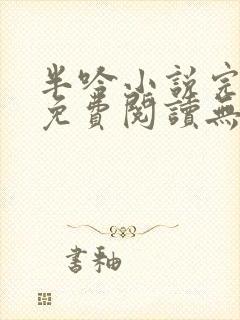 半吟小說完
免費閱讀無
書釉